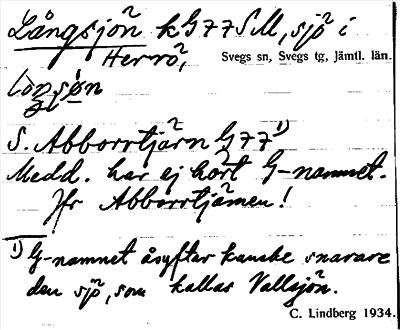 Långsjön kG77SM, sjö i
Herrö, Svegs sn, Svegs tg, Jämtl. län.
lòŋsø̀n
S. Abborrtjärn G77 1)
Medd. har ej hört G-namnet.
Jfr Abborrtjärnen!
1) G-namnet åsyftar kanske snarare
den sjö, som kallas Vallsjön.
C. Lindberg 1934.